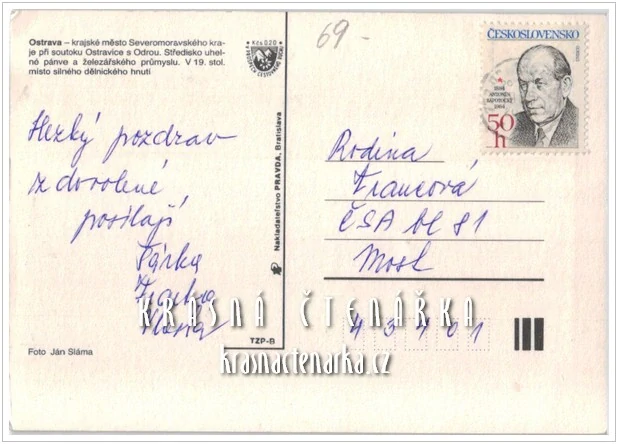 Ostrava – krajské město Severomoravského kra-
je při soutoku Ostravice s Odrou. Středisko uhel-
né pánve a železářského průmyslu. V 19. stol.
místo silného dělnického hnutí
Kčs 0.20
69 -
ČESKOSLOVENSKO
1884
ANTONÍN
ZÁPOTOCKÝ
50
h
Hezký pozdrav
z dovolené
posílají
Šárka
Nakladateľstvo PRAVDA, Bratislava
Rodina
Francová
ČSA bl 81
Most
43401
KRÁSNÁ ČTENÁŘKA
krasnactenarka.cz
TZP-B
Foto Ján Sláma